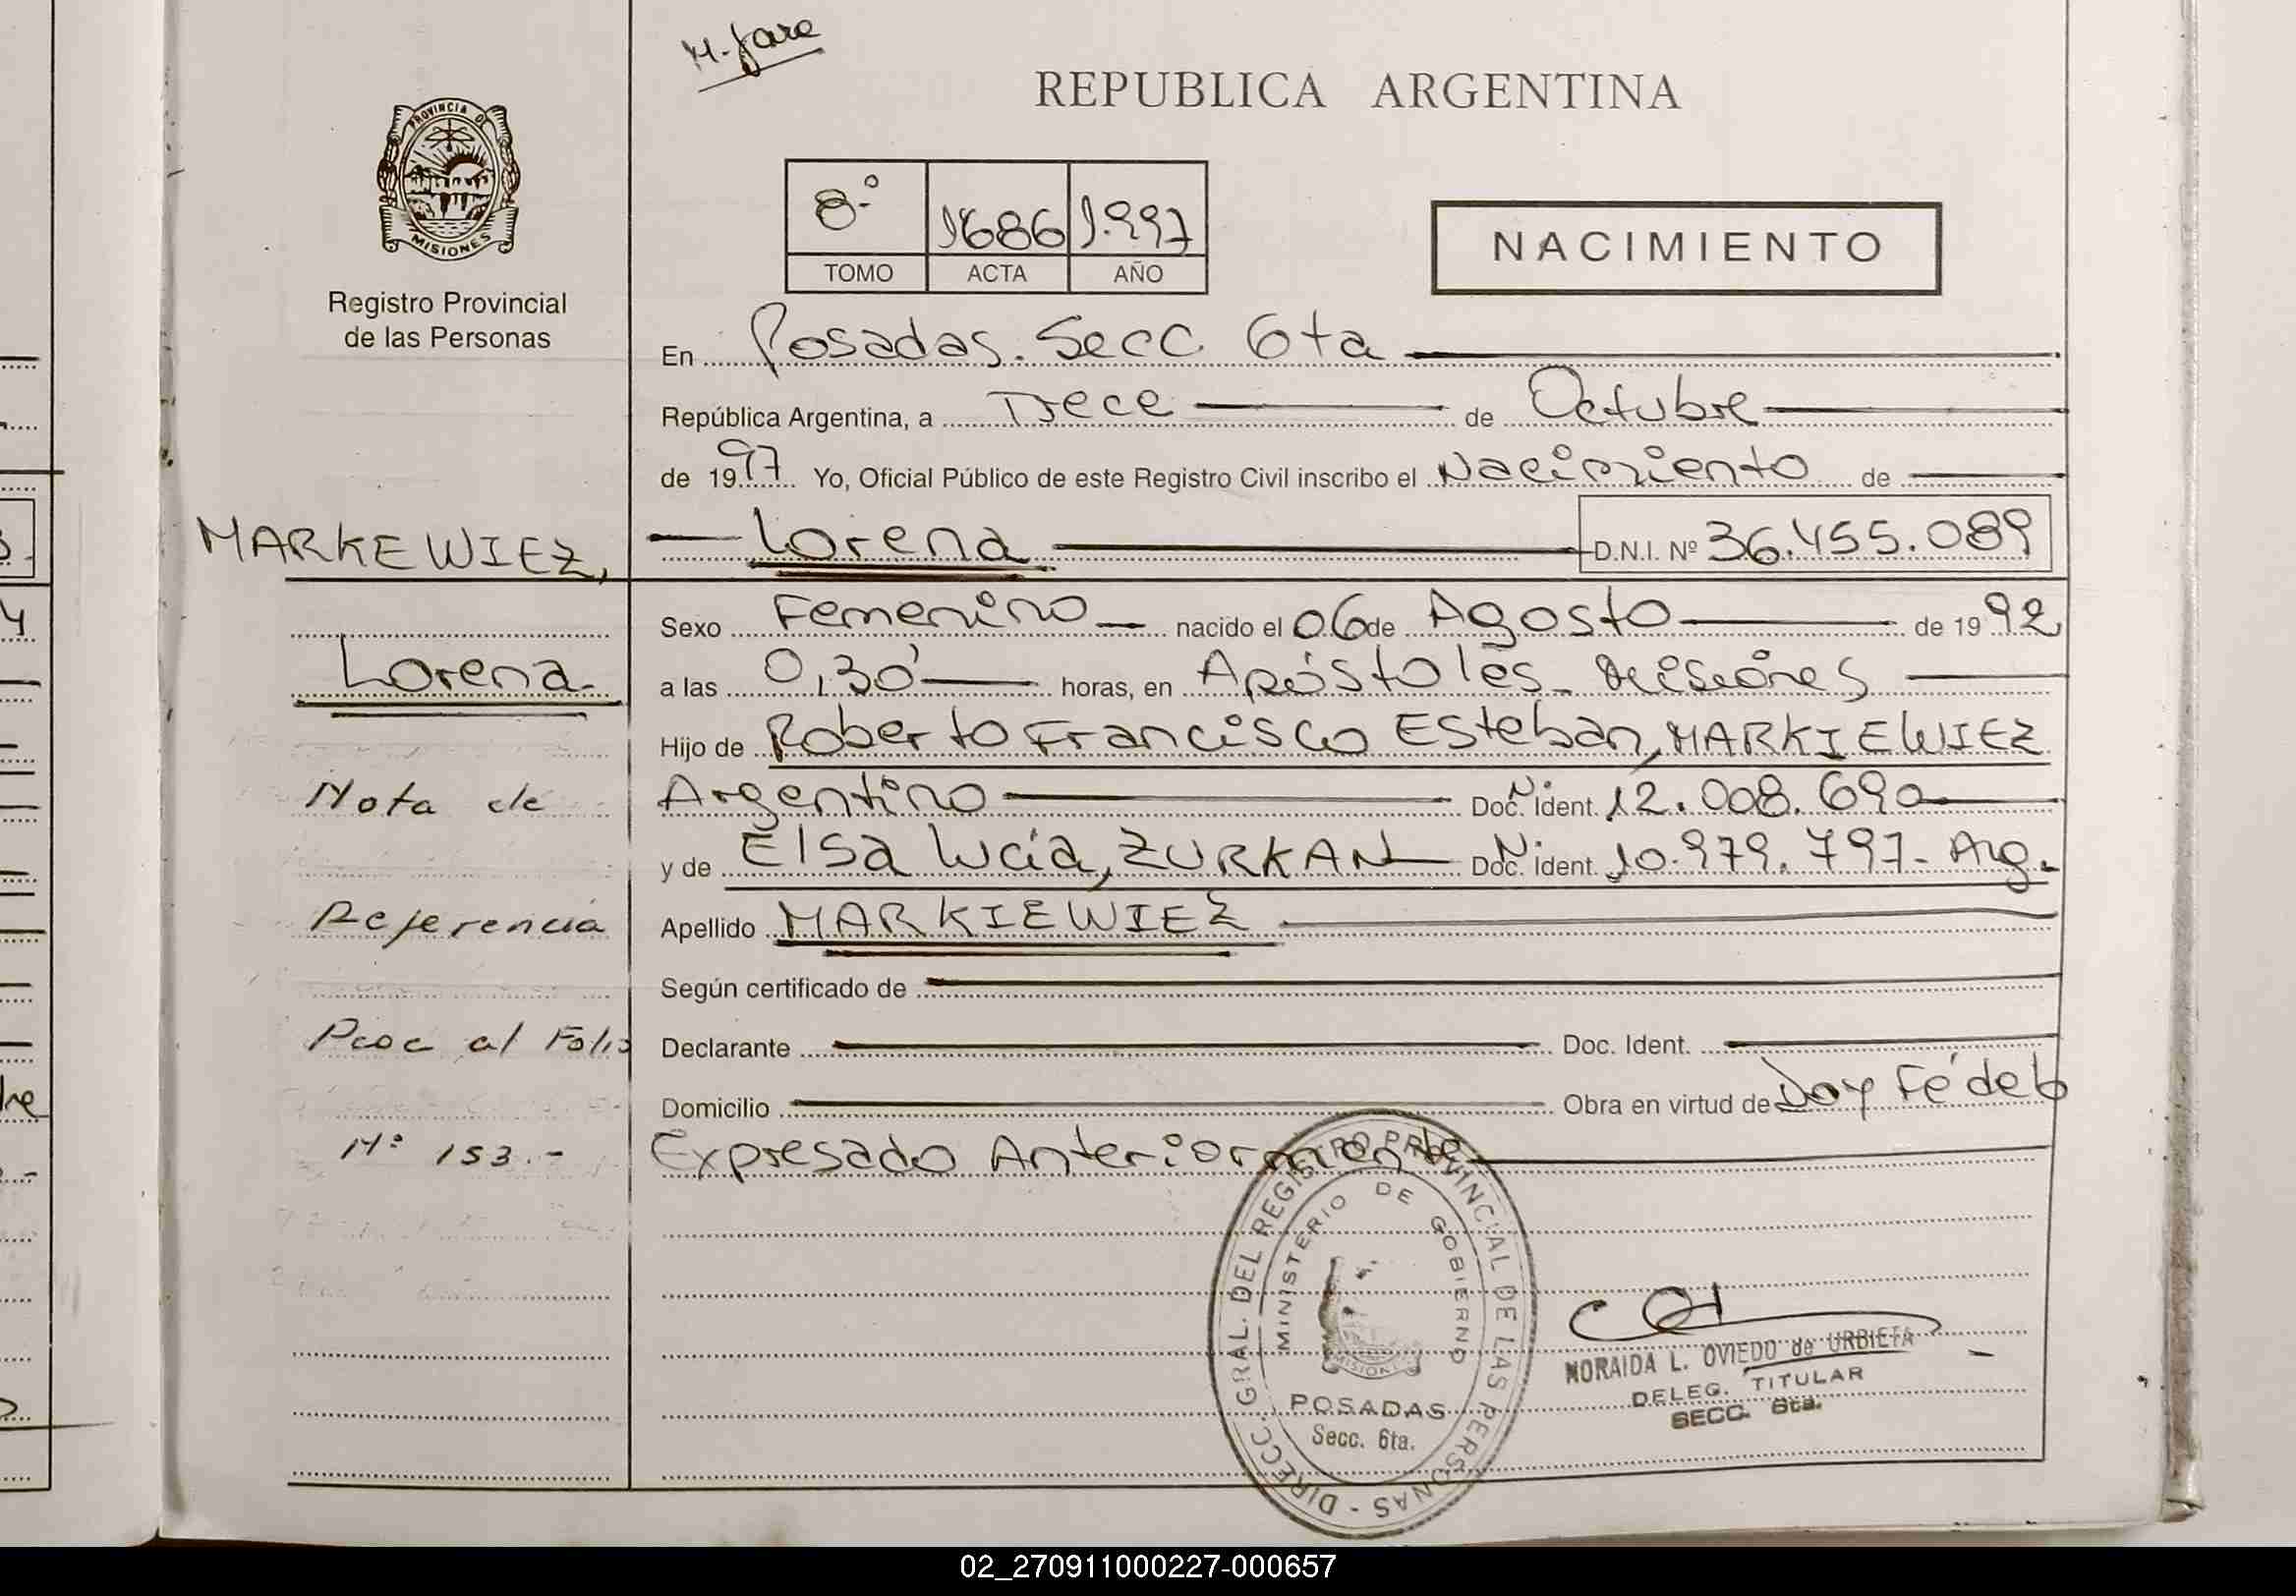 M. Jare
REPUBLICA ARGENTINA
PROVINCIA DE
MISIONES
Registro Provincial
de las Personas
8º 1686 1.997
TOMO ACTA AÑO
NACIMIENTO
En Posadas. Secc 6ta
República Argentina, a Trece de Octubre
de 1997 Yo, Oficial Público de este Registro Civil inscribo el Nacimiento de
MARKEWIEZ,
Lorena D.N.I. Nº 36.455.089
Sexo Femenino nacido el 06 de Agosto de 1992
Lorena
a las 0,30 horas, en Apóstoles - Misiones
Hijo de Roberto Francisco Esteban, MARKIEWIEZ
Nota de
Argentino Doc. Nº Ident. 12.008.690
y de Elsa Lucía, ZURKAN Doc. Nº Ident. 10.979.797- Arg.
Referencia
Apellido MARKIEWIEZ
Según certificado de
al Folio
Declarante Doc. Ident.
Domicilio Obra en virtud de Doy Fé de lo
Nº 153.-
Expresado Anteriormente
DIRECC. GRAL. DEL REGISTRO PROVINCIAL DE LAS PERSONAS -
MINISTERIO DE GOBIERNO
MISIONES
POSADAS
Secc. 6ta.
NORAIDA L. OVIEDO de URBIETA
DELEG. TITULAR
SECC. 6ta.
02_270911000227-000657